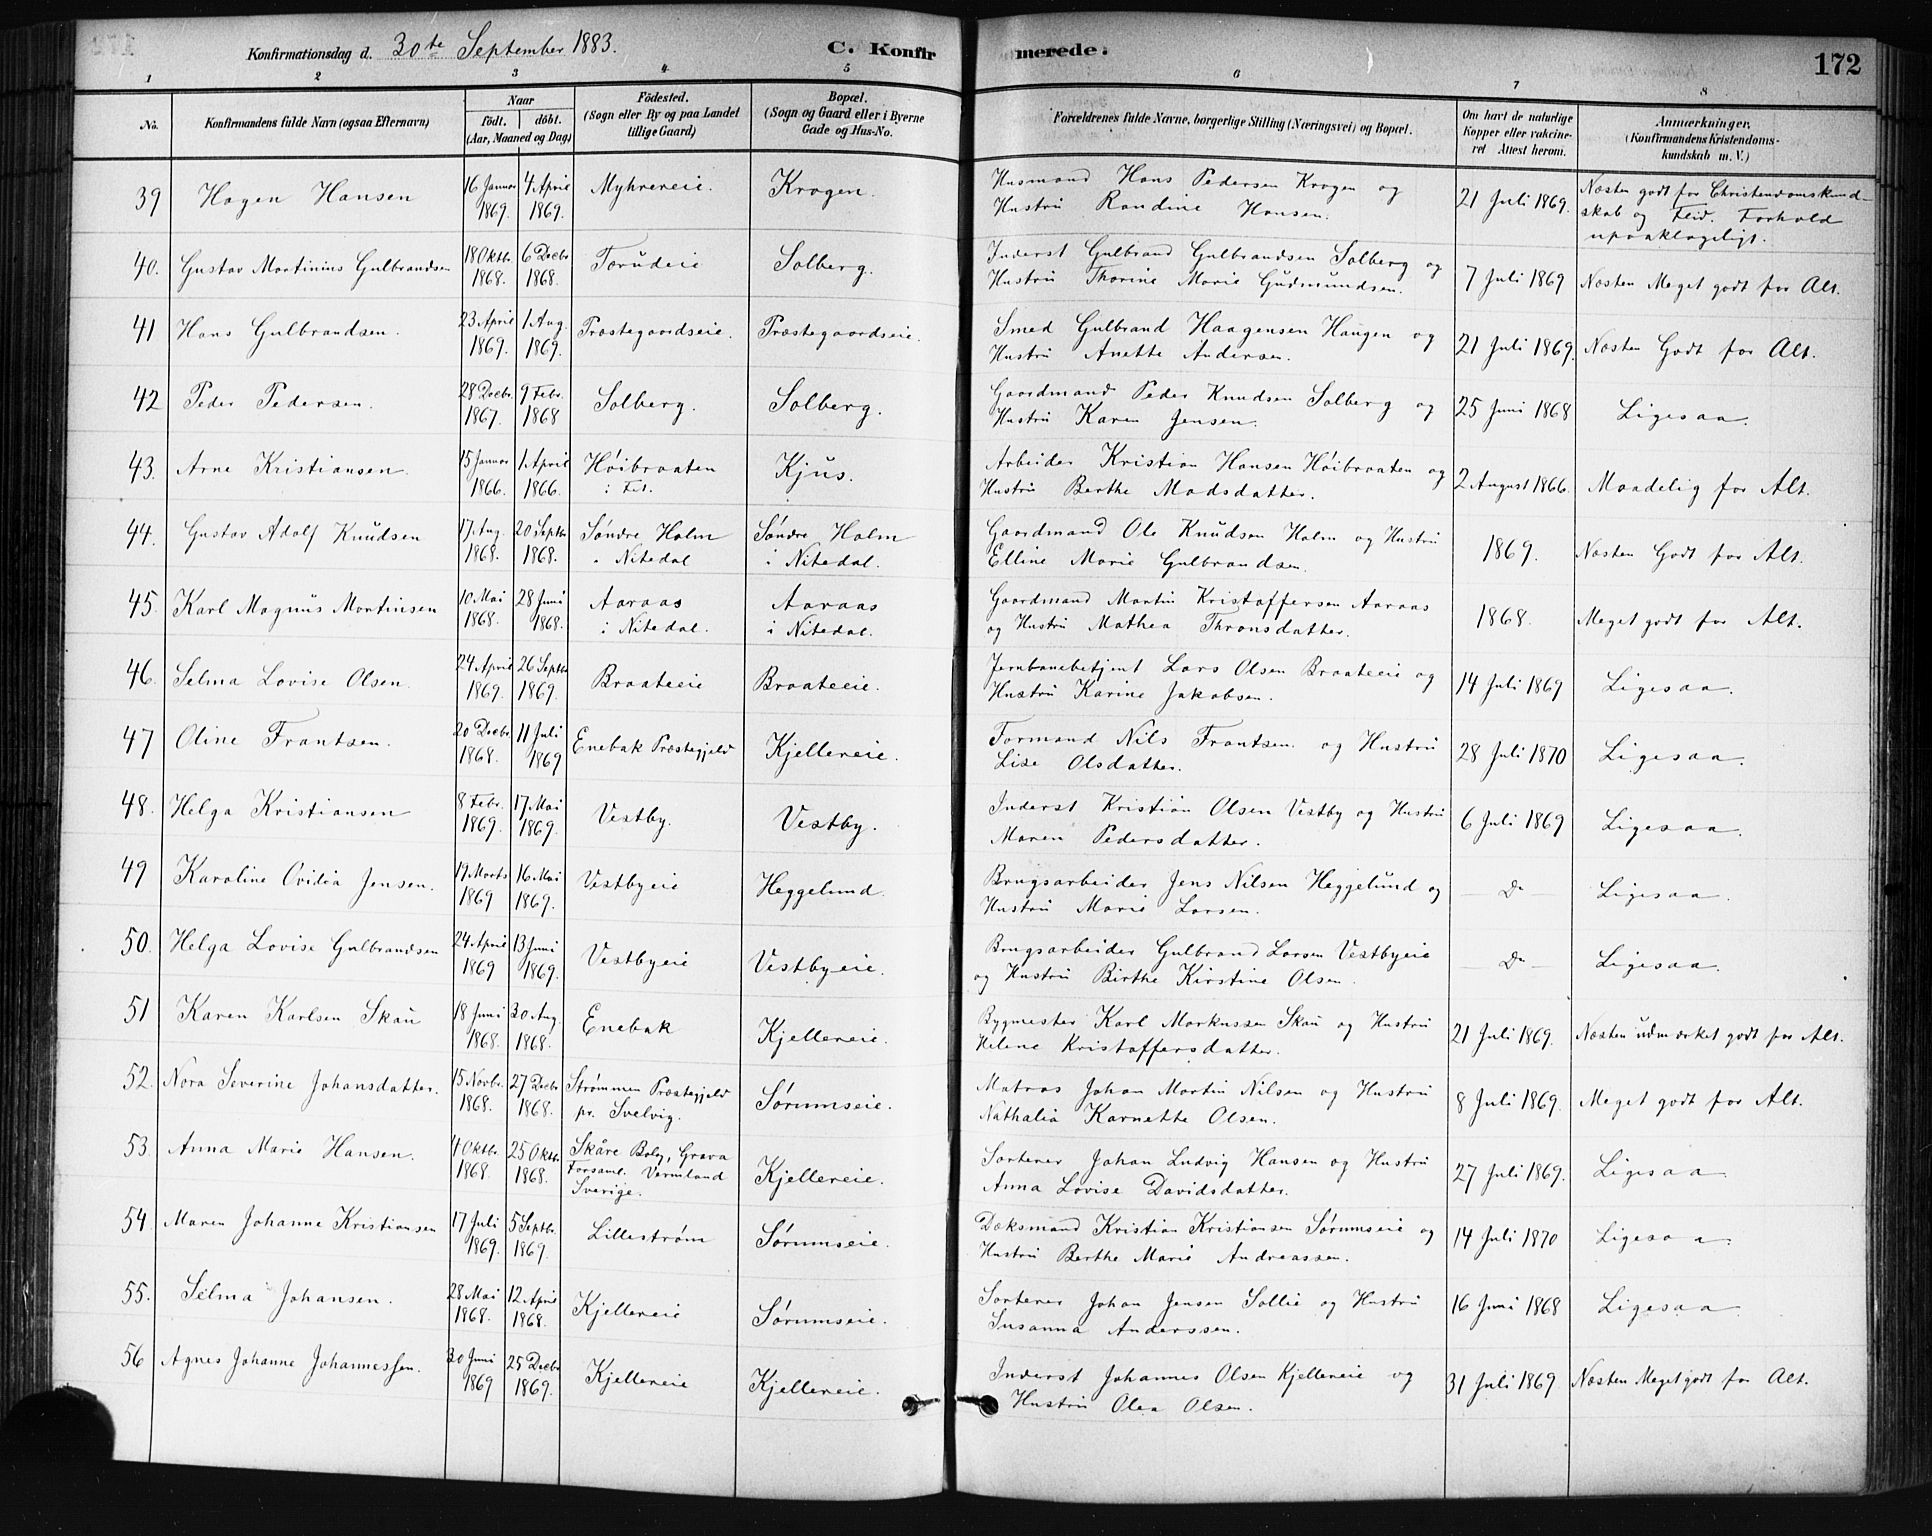 Konfirmationsdag d. 30te September 1883.
C. Konfirmerede.
172
1 2 3 4 5 6 7 8
No.
Konfirmandens fulde Navn (ogsaa Efternavn)
Naar
Födt. döbt.
(Aar, Maaned og Dag)
Födested.
(Sogn eller By og paa Landet
tillige Gaard)
Bopæl.
(Sogn og Gaard eller i Byerne
Gade og Hus-No.
Forældrenes fulde Navne, borgerlige Stilling (Næringsvei) og Bopæl.
Om havt de naturlige
Kopper eller vakcine-
ret Attest herom.
Anmærkninger.
(Konfirmandens Kristendoms-
kundskab m. V.)
39 Hagen Hansen 16 Januar 1869. 4 April 1869. Myhrereie. Krogen. Husmand Hans Pedersen Krogen og
Hustrü Randine Hansen. 21 Juli 1869. Næsten godt for Christendomskund-
skab og Flid. Forhold
upaaklageligt.
40. Gustav Martinius Gulbrandsen 18 Oktbr. 1868. 6 Decbr 1868. Torüdeie Solberg. Inderst Gulbrand Gulbrandsen Solberg og
Hustrü Thorine Marie Güdmündsen. 7 Juli 1869 Næsten Meget godt for Alt.
41 Hans Gulbrandsen. 23 April 1869. 1 Aug. 1869. Præstegaardseie. Præstegaardseie. Smed Gulbrand Haagensen Haugen og
Hustrü Anette Andersen. 21 Juli 1869. Næsten Godt for Alt.
42 Peder Pedersen. 28 Decbr. 1867. 9 Febr. 1868 Solberg. Solberg. Gaardmand Peder Knudsen Solberg og
Hustrü Karen Jensen. 25 Juni 1868 Ligesaa.
43. Arne Kristiansen. 15 Januar 1866. 1 April 1866. Höibraaten
i Fet. Kjüs. Arbeider Kristian Hansen Höibraaten og
Hustrü Berthe Madsdatter. 2 August 1866. Maadelig for Alt.
44. Gustav Adolf Knüdsen 17 Aug. 1868. 20 Septbr 1868. Søndre Holm
i Nitedal Søndre Holm
i Nitedal. Gaardmand Ole Knüdsen Holm og Hustrü
Elline Marie Gulbrandsen. 1869. Næsten Godt for Alt.
45. Karl Magnüs Martinsen 10 Mai 1868. 28 Juni 1868. Aaraas
i Nitedal. Aaraas
i Nitedal. Gaardmand Martin Kristoffersen Aaraas
og Hustrü Mathea Thronsdatter. 1868. Meget godt for Alt.
46. Selma Lovise Olsen. 24 April 1869. 26 Septbr 1869. Braateeie Braateeie. Jernbanebetjent Lars Olsen Braateeie og
Hustrü Karine Jakobsen. 14 Juli 1869 Ligesaa.
47 Oline Frantsen. 20 Decbr. 1868. 11 Juli 1869 Enebak Præstegjeld Kjellereie. Formand Nils Frantsen og Hustrü
Lise Olsdatter. 28 Juli 1870 Ligesaa.
48. Helga Kristiansen 8 Febr. 1869. 17 Mai 1869. Vestby. Vestby. Inderst Kristian Olsen Vestby og Hustrü
Maren Pedersdatter. 6 Juli 1869 Ligesaa.
49 Karoline Ovidia Jensen. 19 Marts 1869 16 Mai 1869. Vestbyeie Heggelund. Brugsarbeider Jens Nilsen Heggelund og
Hustrü Marie Larsen. Do Ligesaa.
50. Helga Lovise Gulbrandsen 24 April 1869 13 Juni 1869. Vestbyeie Vestbyeie. Brugsarbeider Gulbrand Larsen Vestbyeie
og Hustrü Birthe Kirstine Olsen. Do Ligesaa.
51 Karen Karlsen Skau 18 Juni 1868. 30 Aug. 1868. Enebak Kjellereie. Bygmester Karl Markussen Skau og Hustrü
Helene Kristoffersdatter. 21 Juli 1869. Næsten üdmærket godt for Alt.
52. Nora Severine Johansdatter. 15 Novbr. 1868. 27 Decbr 1868. Strømmen Præstegjeld
pr. Svelvig. Sørumseie. Matros Johan Martin Nilsen og Hustrü
Nathalia Karnette Olsen. 8 Juli 1869. Meget godt for Alt.
53. Anna Marie Hansen. 4 Oktbr. 1868. 25 Oktbr. 1868. Skåre Boby, Grava
Forsaml. Vermland
Sverige. Kjellereie. Sorterer Johan Ludvig Hansen og Hustrü
Anna Lovise Davidsdatter. 27 Juli 1869. Ligesaa
54 Maren Johanne Kristiansen 17 Juli 1869. 5 Septbr. 1869. Lillestrøm Sørumseie. Doksmand Kristian Kristiansen Sørumseie og
Hustrü Berthe Marie Andreassen. 14 Juli 1870 Ligesaa.
55. Selma Johansen. 28 Mai 1868. 12 April 1868. Kjellereie Sørumseie. Sorterer Johan Jensen Sollie og Hustrü
Susanna Anderssen. 16 Juni 1868 Ligesaa.
56 Agnes Johanne Johannessen. 30 Juni 1869 25 Decbr 1869. Kjellereie Kjellereie. Inderst Johannes Olsen Kjellereie og
Hustrü Olea Olsen. 31 Juli 1869. Næsten Meget godt for Alt.